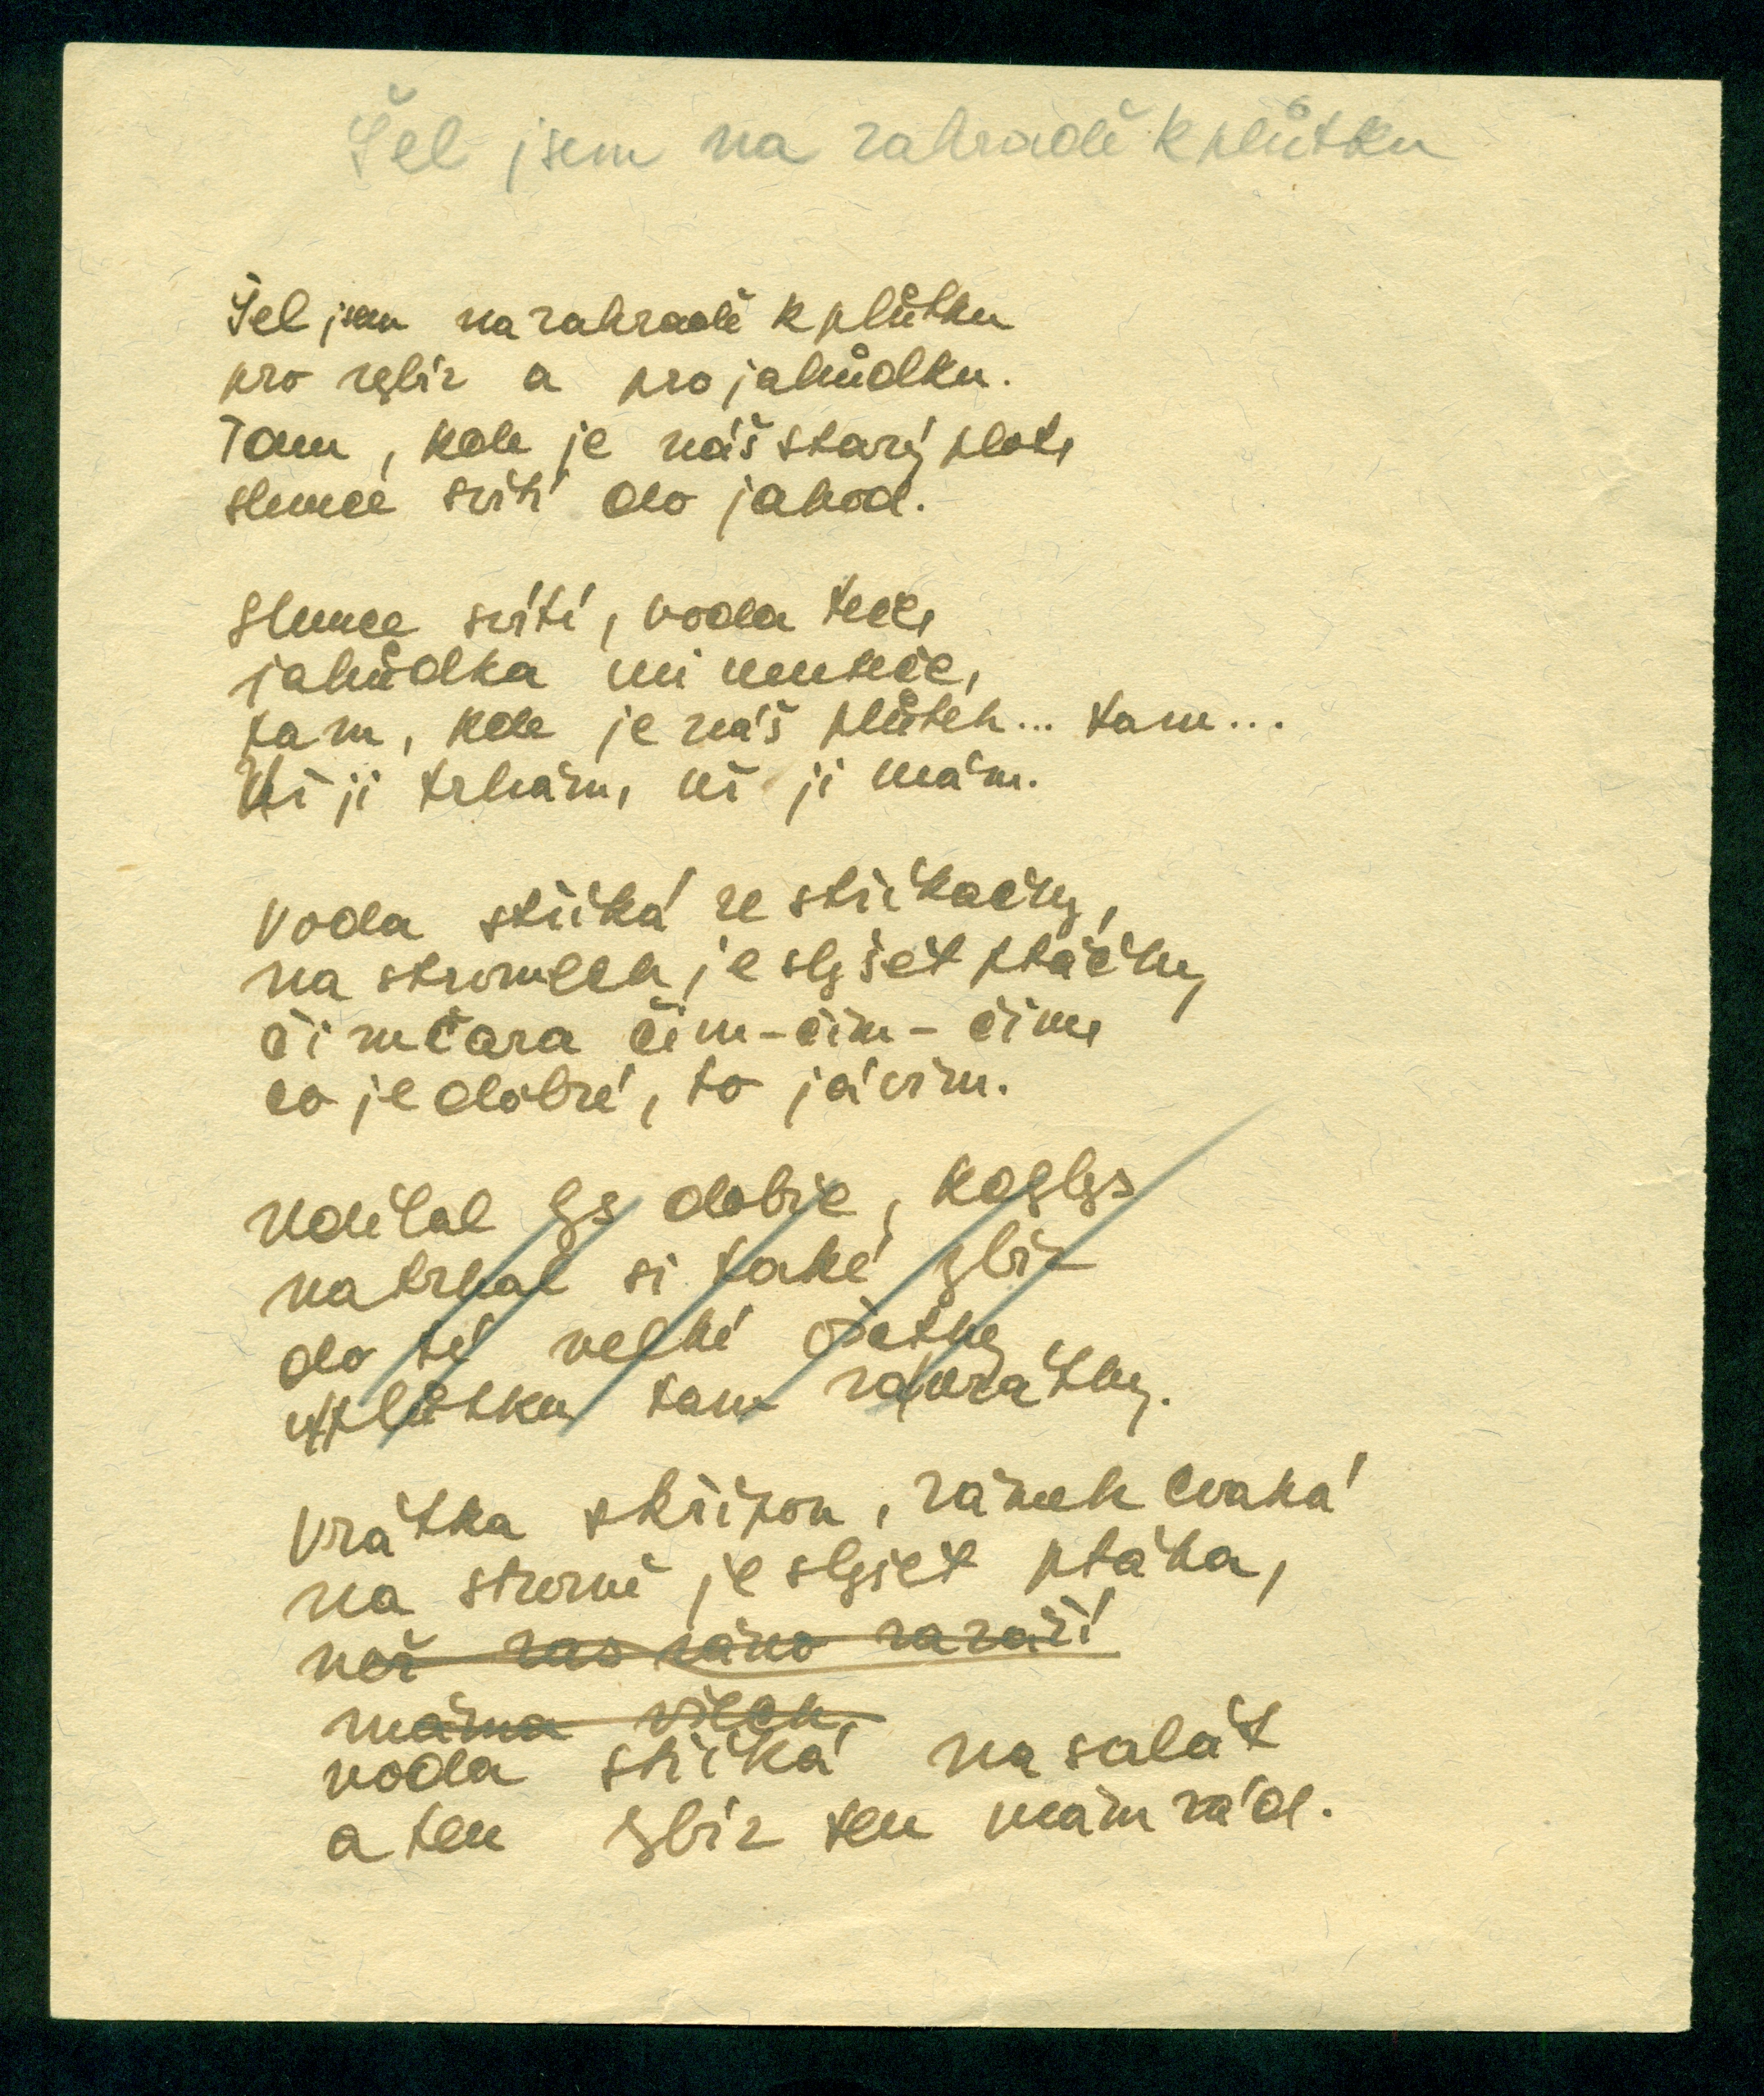 Šel jsem na zahradě k plůtku
Šel jsem na zahradě k plůtku
pro rybíz a pro jahůdku.
Tam, kde je náš starý plot,
slunce svítí do jahod.
Slunce svítí, voda teče,
jahůdka mi neuteče,
tam, kde je náš plůtek... tam...
Už ji trhám, už ji mám.
Voda stříká ze stříkačky,
na stromech je slyšet ptáčky
čimčara čim-čim-čim,
co je dobré, to já vím.
Udělal bys dobře, kdybys
natrhal si také rybíz
do té velké ošatky
u plůtku tam za vrátky.
Vrátka skřípou, zámek cvaká
na stromě je slyšet ptáka,
než zas ráno zazáří
máma všech,
voda stříká na salát
a ten rybíz ten mám rád.